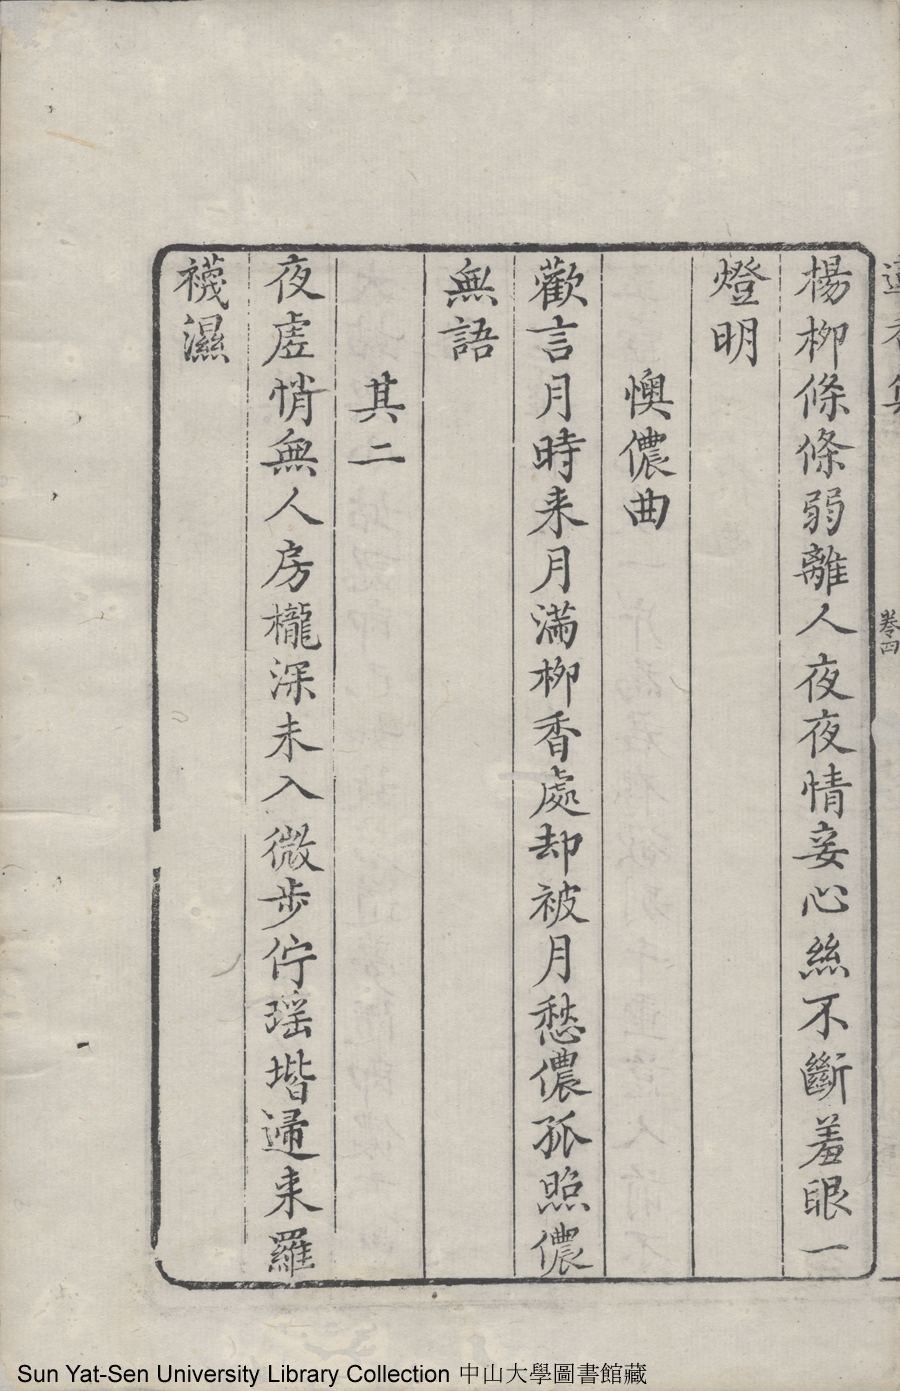 蓮香集
卷四
楊柳條條弱離人夜夜情妾心絲不斷羞眼一
燈明
懊儂曲
歡言月時来月滿柳香處却被月愁儂孤照儂
無語
其二
夜虗悄無人房櫳深未入微步佇瑶堦逓来羅
襪濕
Sun Yat-Sen University Library Collection 中山大學圖書館藏